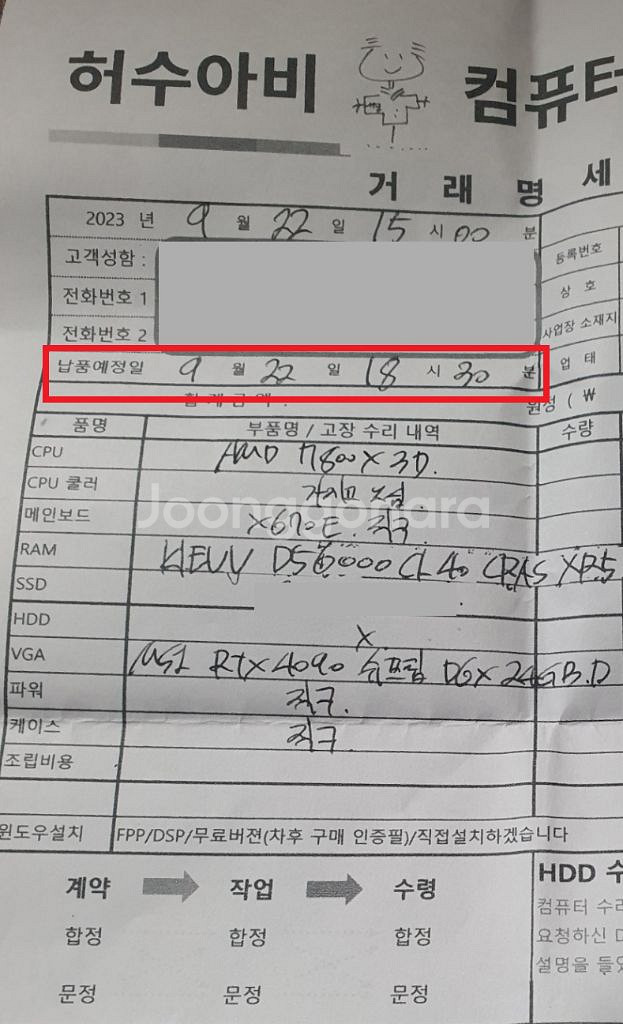 허수아비 컴퓨터
거 래 명 세
2023 년 9 월 22 일 15 시 00 분
고객성함 :
등록번호
전화번호 1
상 호
전화번호 2
사업장 소재지
납품예정일 9 월 22 일 18 시 30 분
업 태
합계금액 :
원정 ( ₩
품명 부품명 / 고장 수리 내역 수량
CPU AMD 7800X3D.
CPU 쿨러
메인보드 X670E. 직구.
Joonggonara
RAM KLEVV D5 6000 CL40 CRAS XR5
SSD
HDD X
VGA MSI RTX4090 슈프림 D6X 24GB.D
파워 직구.
케이스 직구
조립비용
윈도우설치 FPP/DSP/무료버젼(차후 구매 인증필)/직접설치하겠습니다
계약 작업 수령
HDD 수
합정 합정 합정
컴퓨터 수리
요청하신 D
문정 문정 문정
설명을 들었